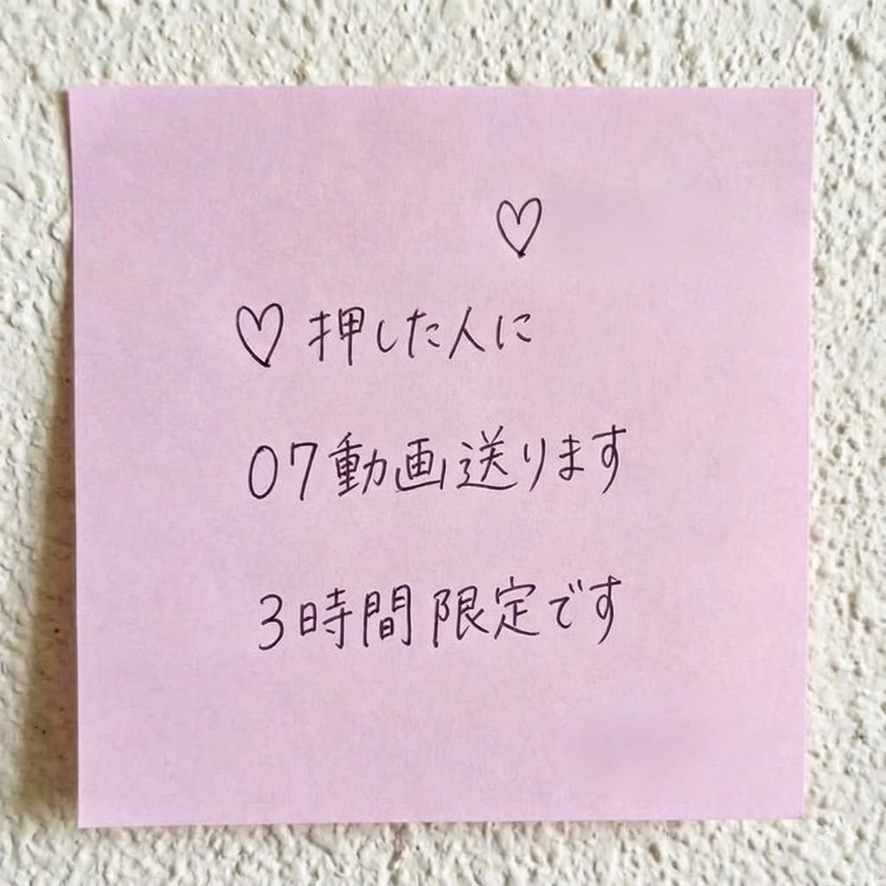 ♡
♡押した人に
07動画送ります
3時間限定です